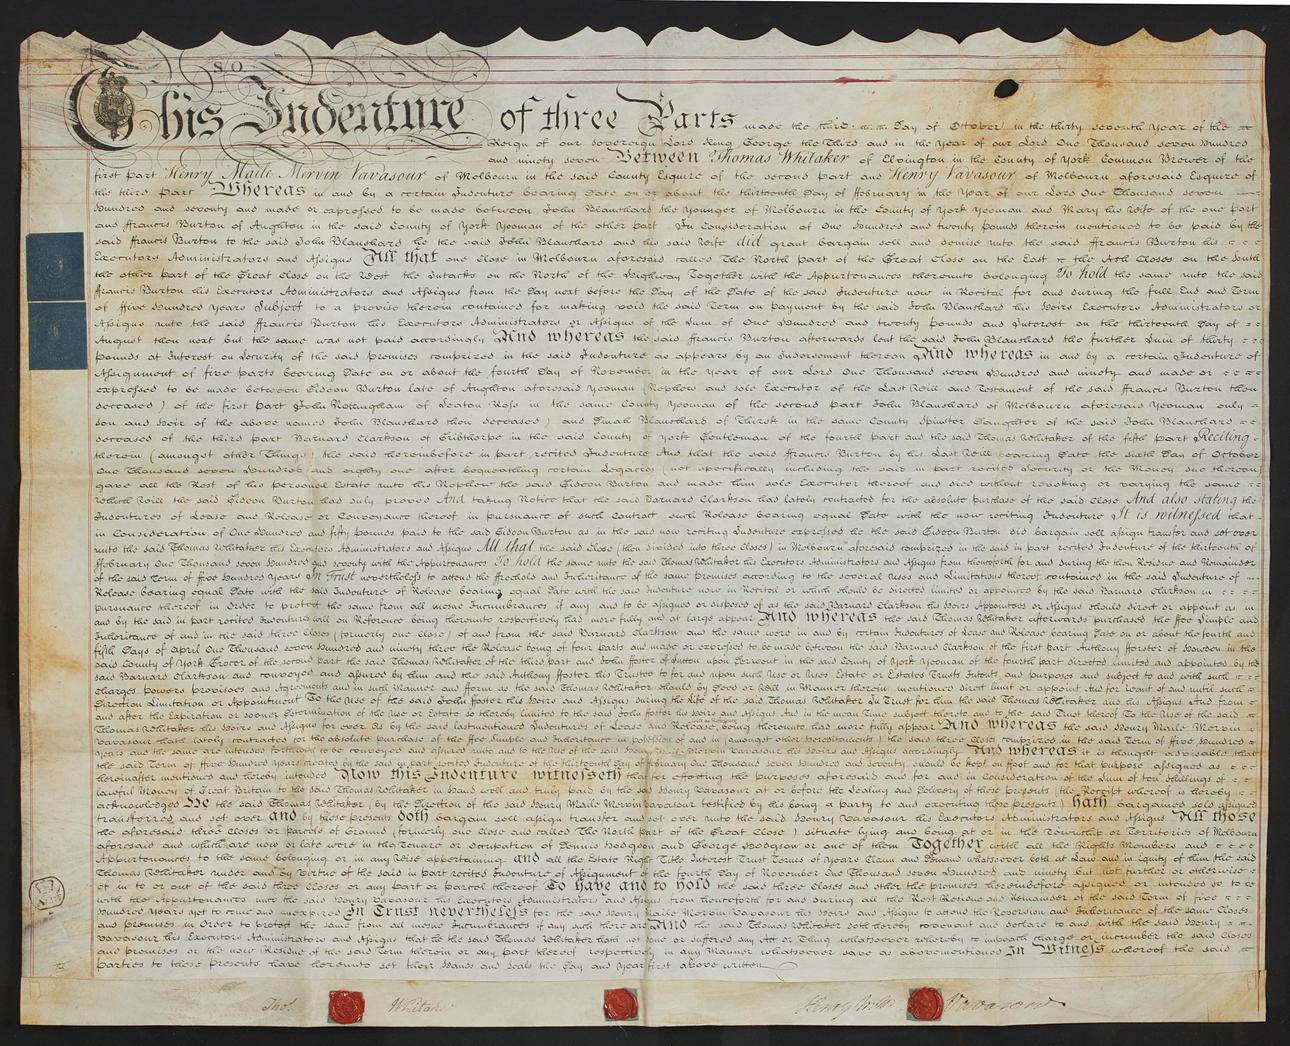 This Indenture of three Parts made the third Day of October in the thirty seventh Year of the
Reign of our sovereign Lord King George the Third and in the year of our Lord One Thousand seven hundred
and ninety seven Between Thomas Whitaker of Elvington in the County of York Common Brewer of the
first part Henry Maile Mervin Vavasour of Melbourn in the said County Esquire of the second part and Henry Vavasour of Melbourn aforesaid Esquire of
the third part Whereas in and by a certain Indenture bearing Date on or about the thirteenth Day of ffebruary in the Year of our Lord One Thousand seven
hundred and seventy and made or expressed to be made between John Blanshard the Younger of Melbourn in the County of York Yeoman and Mary his Wife of the one part
and ffrancis Burton of Aughton in the said County of York Yeoman of the other part In Consideration of One hundred and twenty pounds therein mentioned to be paid by the
said ffrancis Burton to the said John Blanshard he the said John Blanshard and his said Wife did grant bargain sell and demise unto the said ffrancis Burton his
Executors Administrators and Assigns All that one Close in Melbourn aforesaid called The North part of the Great Close on the East the Ash Closes on the South
the other part of the Great Close on the West the Intacks on the North of the Highway Together with the Appurtenances thereunto belonging To hold the same unto the said
ffrancis Burton his Executors Administrators and Assigns from the Day next before the Day of the Date of the said Indenture now in Recital for and during the full End and Term
of ffive hundred Years Subject to a proviso therein contained for making void the said Term on payment by the said John Blanshard his Heirs Executors Administrators or
Assigns unto the said ffrancis Burton his Executors Administrators or Assigns of the Sum of One hundred and twenty pounds and Interest on the thirteenth Day of
August then next but the same was not paid accordingly And whereas the said ffrancis Burton afterwards lent the said John Blanshard the further Sum of thirty
pounds at Interest on Security of the said premises comprized in the said Indenture as appears by an Indorsement thereon And whereas in and by a certain Indenture of
Assignment of five parts bearing Date on or about the fourth Day of November in the year of our Lord One Thousand seven hundred and ninety and made or
expressed to be made between Gideon Burton late of Aughton aforesaid Yeoman (Nephew and sole Executor of the Last Will and Testament of the said ffrancis Burton then
deceased) of the first part John Rollingham of Seaton Ross in the same County Yeoman of the second part John Blanshard of Melbourn aforesaid Yeoman only
son and Heir of the above named John Blanshard then deceased) and Blanshard of Thirsk in the same County Spinster Daughter of the said John Blanshard
deceased of the third part Barnard Clarkson of Gribthorpe in the said County of York Gentleman of the fourth part and the said Thomas Whitaker of the fifth part Reciting
therein (amongst other Things) the said hereinbefore in part recited Indenture And that the said ffrancis Burton by his Last Will bearing Date the sixth Day of October
One Thousand seven hundred and eighty one after bequeathing certain Legacies (not specifically including the said in part recited Security or the Money due thereon)
gave all the Rest of his personal Estate unto his Nephew the said Gideon Burton and made him sole Executor thereof and died without revoking or varying the same
which Will the said Gideon Burton had duly proved And taking Notice that the said Barnard Clarkson had lately contracted for the absolute purchase of the said Close And also stating the
Indentures of Lease and Release or Conveyance thereof in pursuance of such Contract such Release bearing equal Date with the now reciting Indenture It is witnessed that
in Consideration of One hundred and fifty pounds paid to the said Gideon Burton as in the said now reciting Indenture expressed he the said Gideon Burton did bargain sell assign transfer and set over
unto the said Thomas Whitaker his Executors Administrators and Assigns All that the said Close (then divided into three Closes) in Melbourn aforesaid comprized in the said in part recited Indenture of the thirteenth of
ffebruary One Thousand seven hundred and seventy with the Appurtenances To hold the same unto the said Thomas Whitaker his Executors Administrators and Assigns from thenceforth for and during the then Residue and Remainder
of the said Term of ffive hundred Years In Trust nevertheless to attend the ffreehold and Inheritance of the same premises according to the several Uses and Limitations thereof contained in the said Indenture of
Release bearing equal Date with the said Indenture of Release bearing equal Date with the said Indenture now in Recital or which should be directed limited or appointed by the said Barnard Clarkson in
pursuance thereof in Order to protect the same from all mesne Incumbrances if any and to be assigned or disposed of as the said Barnard Clarkson his Heirs Appointees or Assigns should direct or appoint as in
and by the said in part recited Indentures will on Reference being thereunto respectively had more fully and at large appear And whereas the said Thomas Whitaker afterwards purchased the ffee Simple and
Inheritance of and in the said three Closes (formerly one Close) of and from the said Barnard Clarkson and the same were in and by certain Indentures of Lease and Release bearing Date on or about the fourth and
fifth Days of April One Thousand seven hundred and ninety three the Release being of four parts and made or expressed to be made between the said Barnard Clarkson of the first part Anthony fforster of Howden in the
said County of York Grocer of the second part the said Thomas Whitaker of the third part and John ffoster of Sutton upon Derwent in the said County of York Yeoman of the fourth part directed limited and appointed by the
said Barnard Clarkson and conveyed and assured by him and the said Anthony ffoster his Trustee to for and upon such Use or Uses Estate or Estates Trusts Intents and purposes and subject to and with such
charges powers provisoes and Agreements and in such Manner and fform as the said Thomas Whitaker should by Deed or Will in Manner therein mentioned direct limit or appoint And for want of and until such
Direction Limitation or Appointment To the Use of the said John ffoster his Heirs and Assigns during the Life of the said Thomas Whitaker In Trust for him the said Thomas Whitaker and his Assigns And from
and after the Expiration or sooner Determination of the Use or Estate so thereby limited to the said John ffoster his Heirs and Assigns And in the mean Time subject thereto and to the said Trust thereof To the Use of the said
Thomas Whitaker his Heirs and Assigns for ever As by the said lastmentioned Indentures of Lease and Release being thereunto had more fully appear And whereas the said Henry Maile Mervin
Vavasour hath lately contracted for the absolute purchase of the ffee Simple and Inheritance in possession of and in (amongst other Hereditaments) the said three Closes comprized in the said Term of ffive hundred
Years and the same are intended forthwith to be conveyed and assured unto and to the Use of the said Henry Maile Mervin Vavasour his Heirs and Assigns accordingly And whereas it is thought advisable that
the said Term of ffive hundred Years created by the said in part recited Indenture of the thirteenth Day of ffebruary One Thousand seven hundred and seventy should be kept on ffoot and for that purpose assigned as
hereinafter mentioned and hereby intended Now this Indenture witnesseth that for effecting the purposes aforesaid and for and in Consideration of the Sum of ten Shillings of
lawful Money of Great Britain to the said Thomas Whitaker in Hand well and truly paid by the said Henry Vavasour at or before the Sealing and Delivery of these presents (the Receipt whereof is hereby
acknowledged) He the said Thomas Whitaker (by the Direction of the said Henry Maile Mervin Vavasour testified by his being a party to and executing these presents) hath bargained sold assigned
transferred and set over and by these presents doth bargain sell assign transfer and set over unto the said Henry Vavasour his Executors Administrators and Assigns All those
the aforesaid three Closes or parcels of Ground (formerly one Close and called The North part of the Great Close) situate lying and being at or in the Township or Territories of Melbourn
aforesaid and which are now or late were in the Tenure or Occupation of Dennis Hodgson and George Hodgson or one of them Together with all the Rights Members and
Appurtenances to the same belonging or in any Wise appertaining and all the Estate Right Title Interest Trust Terms of Years Claim and Demand whatsoever both at Law and in Equity of him the said
Thomas Whitaker under and by Virtue of the said in part recited Indenture of Assignment of the fourth Day of November One Thousand seven hundred and ninety but not further or otherwise
of in to or out of the said three Closes or any Part or Parcel thereof To have and to hold the said three Closes and other the premises hereinbefore assigned or intended so to be
with the Appurtenances unto the said Henry Vavasour his Executors Administrators and Assigns from thenceforth for and during all the Rest Residue and Remainder of the said Term of ffive
hundred Years yet to come and unexpired In Trust nevertheless for the said Henry Maile Mervin Vavasour his Heirs and Assigns to attend the Reversion and Inheritance of the same Closes
and premises in Order to protect the same from all mesne Incumbrances if any such there are And the said Thomas Whitaker doth hereby covenant and declare to and with the said Henry
Vavasour his Executors Administrators and Assigns that he the said Thomas Whitaker hath not done or suffered any Act or Thing whatsoever whereby to impeach charge or incumber the said Closes
and premises or the now Residue of the said Term therein or any part thereof respectively in any Manner whatsoever save as abovementioned In Witness whereof the said
parties to these presents have hereunto set their Hands and Seals the Day and Year first above written
Thos. Whitaker
Henry Vavasour